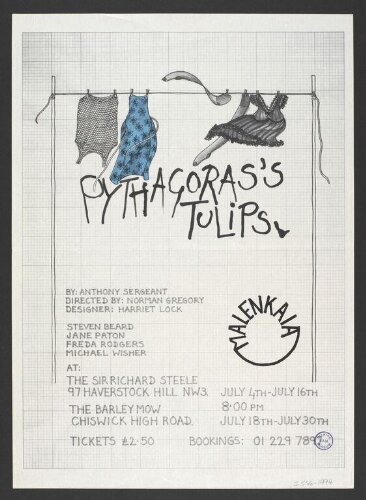 PYTHAGORAS'S
TULIPS
BY: ANTHONY SERGEANT
DIRECTED BY: NORMAN GREGORY
DESIGNER: HARRIET LOCK
MALENKAIA
STEVEN BEARD
JANE PATON
FREDA RODGERS
MICHAEL WISHER
AT:
THE SIR RICHARD STEELE
97 HAVERSTOCK HILL NW3. JULY 4TH-JULY 16TH
8·00 PM
THE BARLEY MOW
CHISWICK HIGH ROAD. JULY 18TH-JULY 30TH
TICKETS £2·50 BOOKINGS: 01 229 7897